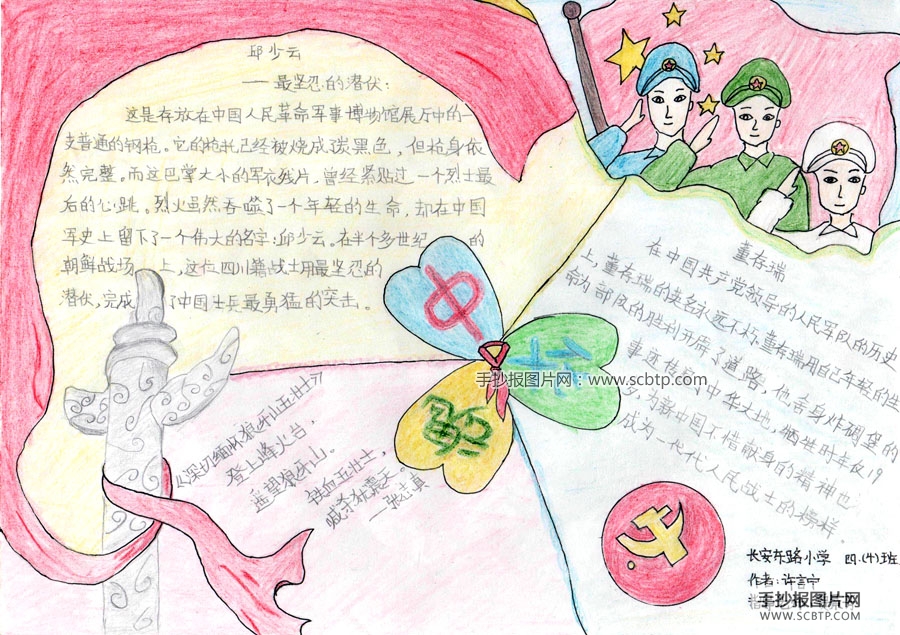 邱少云
——最坚忍的潜伏：
这是存放在中国人民革命军事博物馆展厅中的一
支普通的钢枪。它的枪托已经被烧成炭黑色，但枪身依
然完整。而这巴掌大小的军衣残片，曾经紧贴过一个烈士最
后的心跳。烈火虽然吞噬了一个年轻的生命，却在中国
军史上留下了一个伟大的名字：邱少云。在半个多世纪 的
朝鲜战场 上，这位四川籍战士用最坚忍的
潜伏，完成 了中国士兵最勇猛的突击。
中
手抄报图片网：www.scbtp.com
董存瑞
在中国共产党领导的人民军队的历史
上，董存瑞的英名永远不朽。董存瑞用自己年轻的生
命为部队的胜利开辟了道路，他舍身炸碉堡的
事迹传遍中华大地，牺牲时年仅19
岁，为新中国不惜献身的精神也
成为一代代人民战士的榜样。
《深切缅怀狼牙山五壮士》
登上烽火台，
遥望狼牙山。
铁血五壮士，
喊杀犹震天。
—张志真
长安东路小学 四.(4)班
作者：许言宁
手抄报图片网
WWW.SCBTP.COM